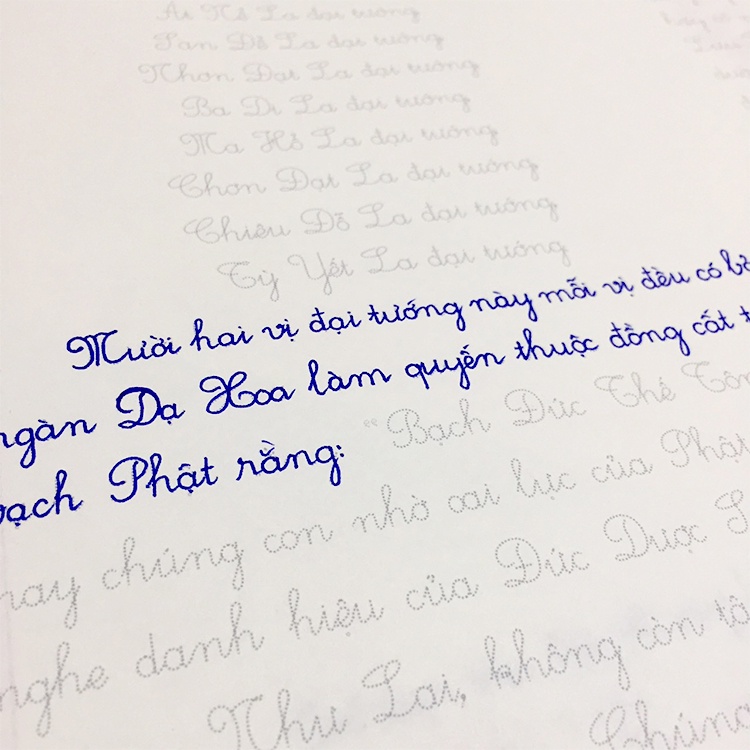 Át Nể La đại tướng
San Để La đại tướng
Nhơn Đạt La đại tướng
Ba Di La đại tướng
Ma Hổ La đại tướng
Chơn Đạt La đại tướng
Chiêu Đỗ La đại tướng
Tỳ Yết La đại tướng
Mười hai vị đại tướng này mỗi vị đều có
ngàn Dạ Hoa làm quyến thuộc đồng cất
bạch Phật rằng:
“Bạch Đức Thế Tôn
nay chúng con nhờ oai lực của Phật
nghe danh hiệu của Đức Dược
Như Lai, không còn
Chúng